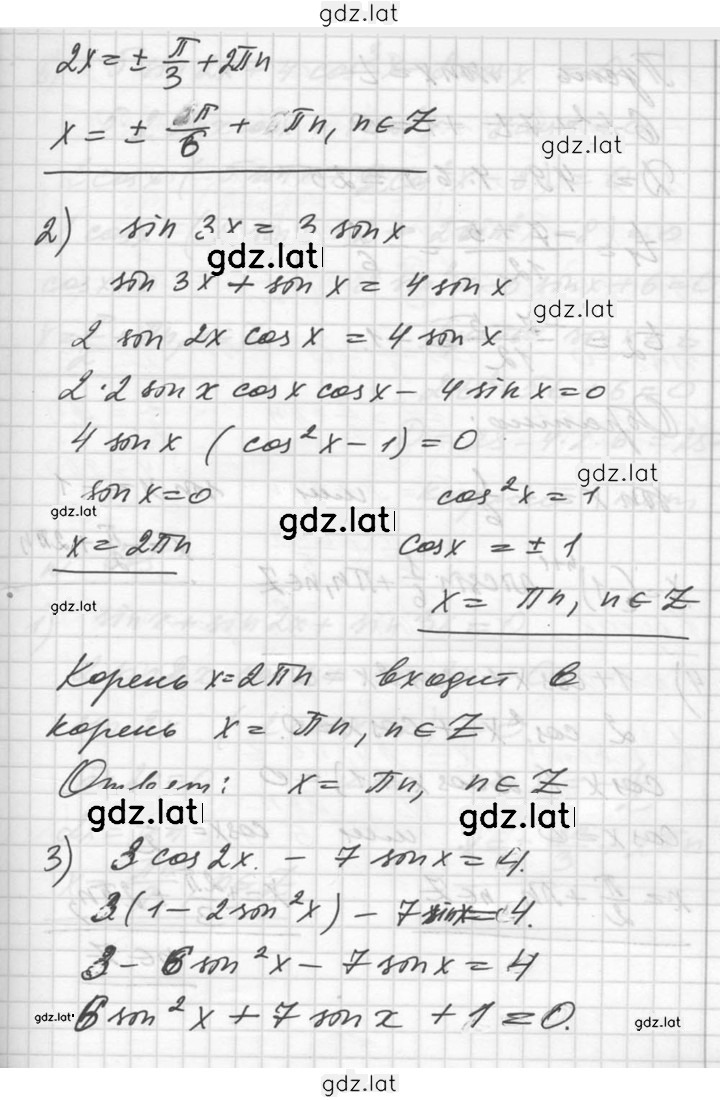 gdz.lat
2x = ± π/3 + 2πn
x = ± π/6 + πn, n ∈ Z
gdz.lat
2) sin 3x = 3 sin x
gdz.lat
sin 3x + sin x = 4 sin x
gdz.lat
2 sin 2x cos x = 4 sin x
2·2 sin x cos x cos x − 4 sin x = 0
4 sin x (cos²x − 1) = 0
gdz.lat
sin x = 0 cos²x = 1
gdz.lat
gdz.lat
x = 2πn cos x = ± 1
gdz.lat
x = πn, n ∈ Z
Корень x = 2πn входит в
корень x = πn, n ∈ Z
Ответ: x = πn, n ∈ Z
gdz.lat gdz.lat
3) 3 cos 2x. − 7 sin x = 4.
3(1 − 2 sin²x) − 7 sin x = 4.
3 − 6 sin²x − 7 sin x = 4
6 sin²x + 7 sin x + 1 = 0.
gdz.lat gdz.lat
gdz.lat